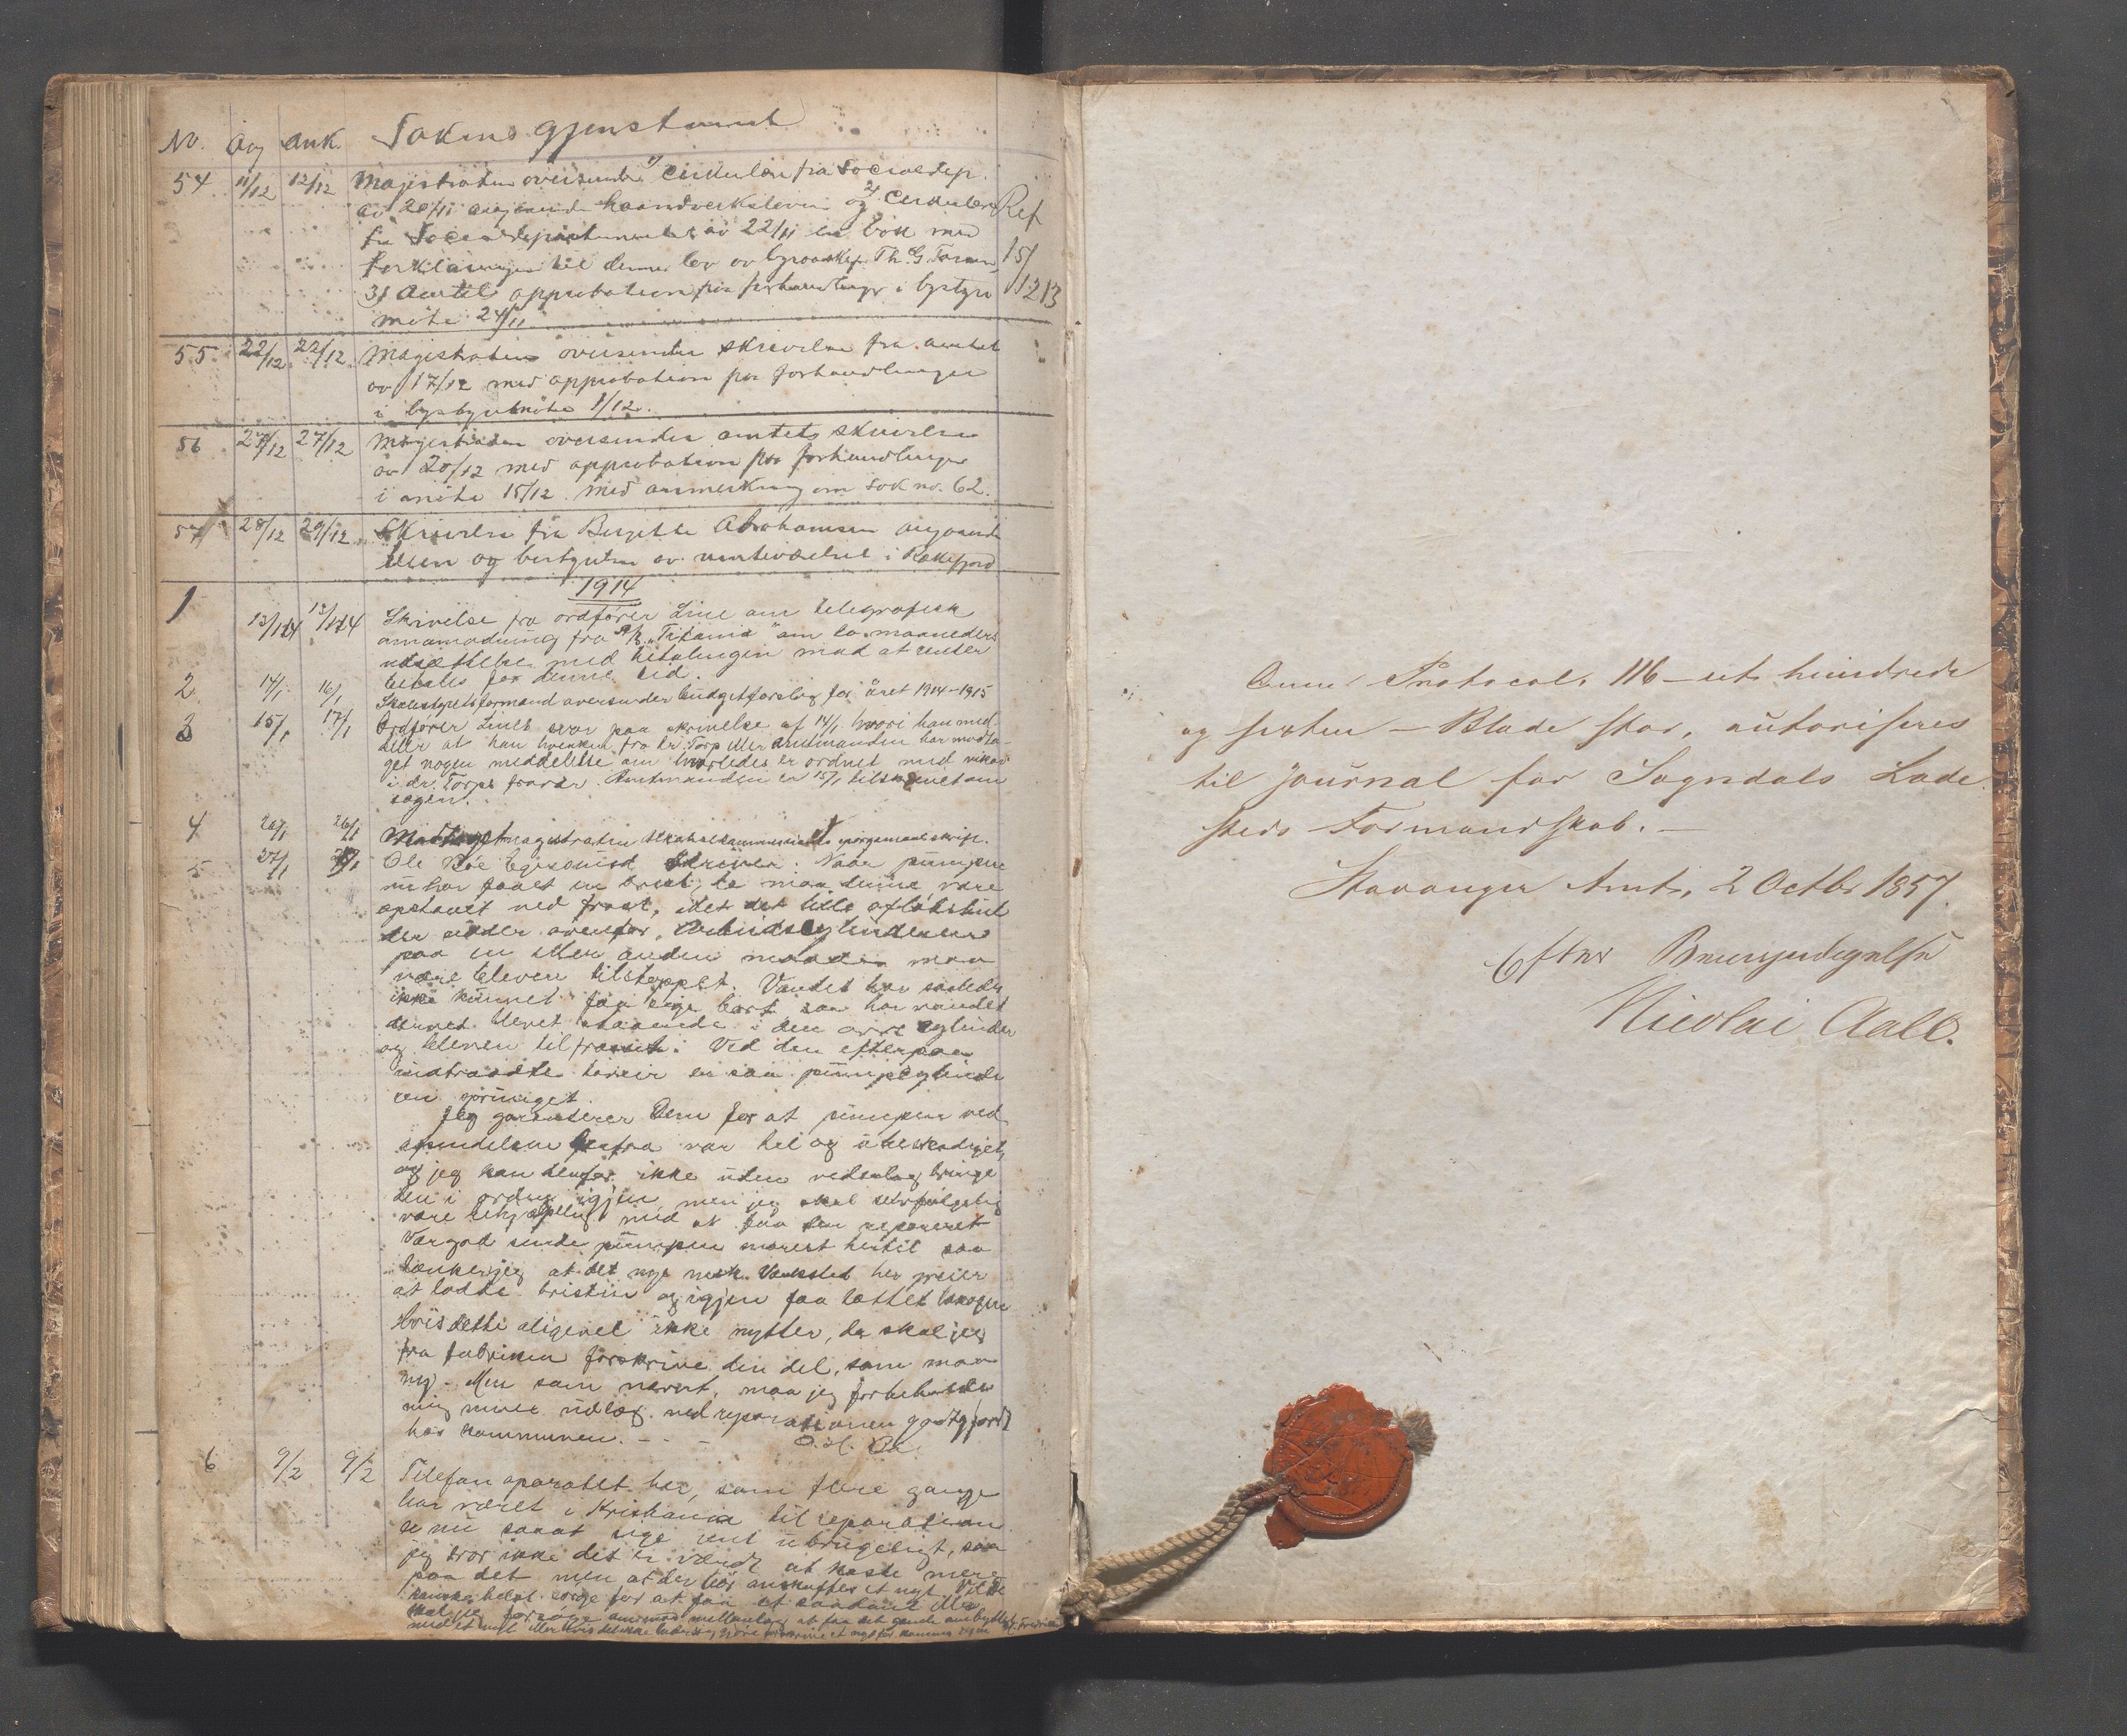 No. Avg Ank. Sakens gjenstand
54 11/12 12/12 Magistraten oversender 1) Cirkulære fra Socialdep.
av 20/11 angaaende haandverksloven og 2) Cirkulære Ref
fra Socialdepartementet av 22/11 en bok med
forklaringer til denne lov av byraachef Th. G. 15/
3) Amtets approbation paa forhandlinger i bystyre 12 13
møte 24/11
55 22/12 22/12 Magistraten oversender skrivelse fra amtet
av 17/12 med approbation paa forhandlinger
i bystyremøte 1/12.
56 27/12 27/12 Magistraten oversender amtets skrivelse
av 20/12 med approbation paa forhandlinger
i møte 15/12. med anmerkning om sak no. 62.
57 28/12 29/12 Skrivelse fra Birgitte Abrahamsen angaaende
leien og bestyrelsen av venteværelset i Rekefjord
1914
1 13/1 14 13/1 14 Skrivelse fra ordfører Line om telegrafisk
anmodning fra A/S "Titania" om to maaneders
utsættelse med betalingen mod at renter
betales for denne tid.
2 14/1 16/1 Skolestyrets formand oversender budgetforslag for året 1914-1915
3 15/1 17/1 Ordfører Lines svar paa skrivelse af 14/1 hvori han med-
deler at han hverken fra dr. Torp eller Amtmanden har modta-
get nogen meddelelse om hvorledes er ordnet med vikar
i dr. Torps fravær. Amtmanden er 15/1 tilskrevet om
sagen.
4 26/1 26/1 Modtaget magistraten skrift.
5 27/1 Ole Bøe Egersund skriver: Naar pumpen
nu har faaet en brist, da maa denne være
opstaaet ved frost, idet det lille afløbshul
der sidder ovenfor Arbeidscylinderen
paa en eller anden maade maa
være bleven tilstoppet. Vandet har saaledes
ikke kunnet faa sige bort saa har vandet
derved blevet staaende i den øvre cylinder
og bleven tilfrosset. Ved den efterpaa
indtraadte tøveir er saa pumpecylinder
en sprunget.
Jeg garanterer Dem for at pumpen ved
afsendelsen herfra var hel og ubeskadiget,
og jeg kan derfor ikke uden vederlag bringe
den i orden igjen, men jeg skal selvfølgelig
være behjælpelig med at faa den repareret
Vær god sende pumpen snarest hertil saa
tænker jeg at det nye mek. Værksted her greier
at lodde bristen og igjen faa tættet
Hvis dette aligevel ikke nytter, da skal jeg
fra fabriken forskrive den del, som maa
ny. Men som nævnt, maa jeg forbeholde
mig mine udlæg ved reparationen godtgjort
hos kommunen. - - -
6 9/2 9/2 Telefonaparatet her, som flere gange
har været i Kristiania til reparation
er nu saaat sige rent ubrugeligt, saa
jeg tror ikke det er værdt at koste mere
paa det men at der bør anskaffes et nyt. Vil De
kanske helst sørge for at faa et saadant eller
skal jeg forsøge mod mellemlag at faa det gamle ombyttet
med et nyt eller hvis det ikke lader sig gjøre forskrive et nyt for kommunens regning
Denne Protocol, 116 – et hundrede
og sexten – Blade stor, autoriseres
til Journal for Sogndals Lade-
steds Formandskab. –
Stavanger Amt, 2 Octbr 1857.
Efter Bemyndigelse
Nicolai Aall.